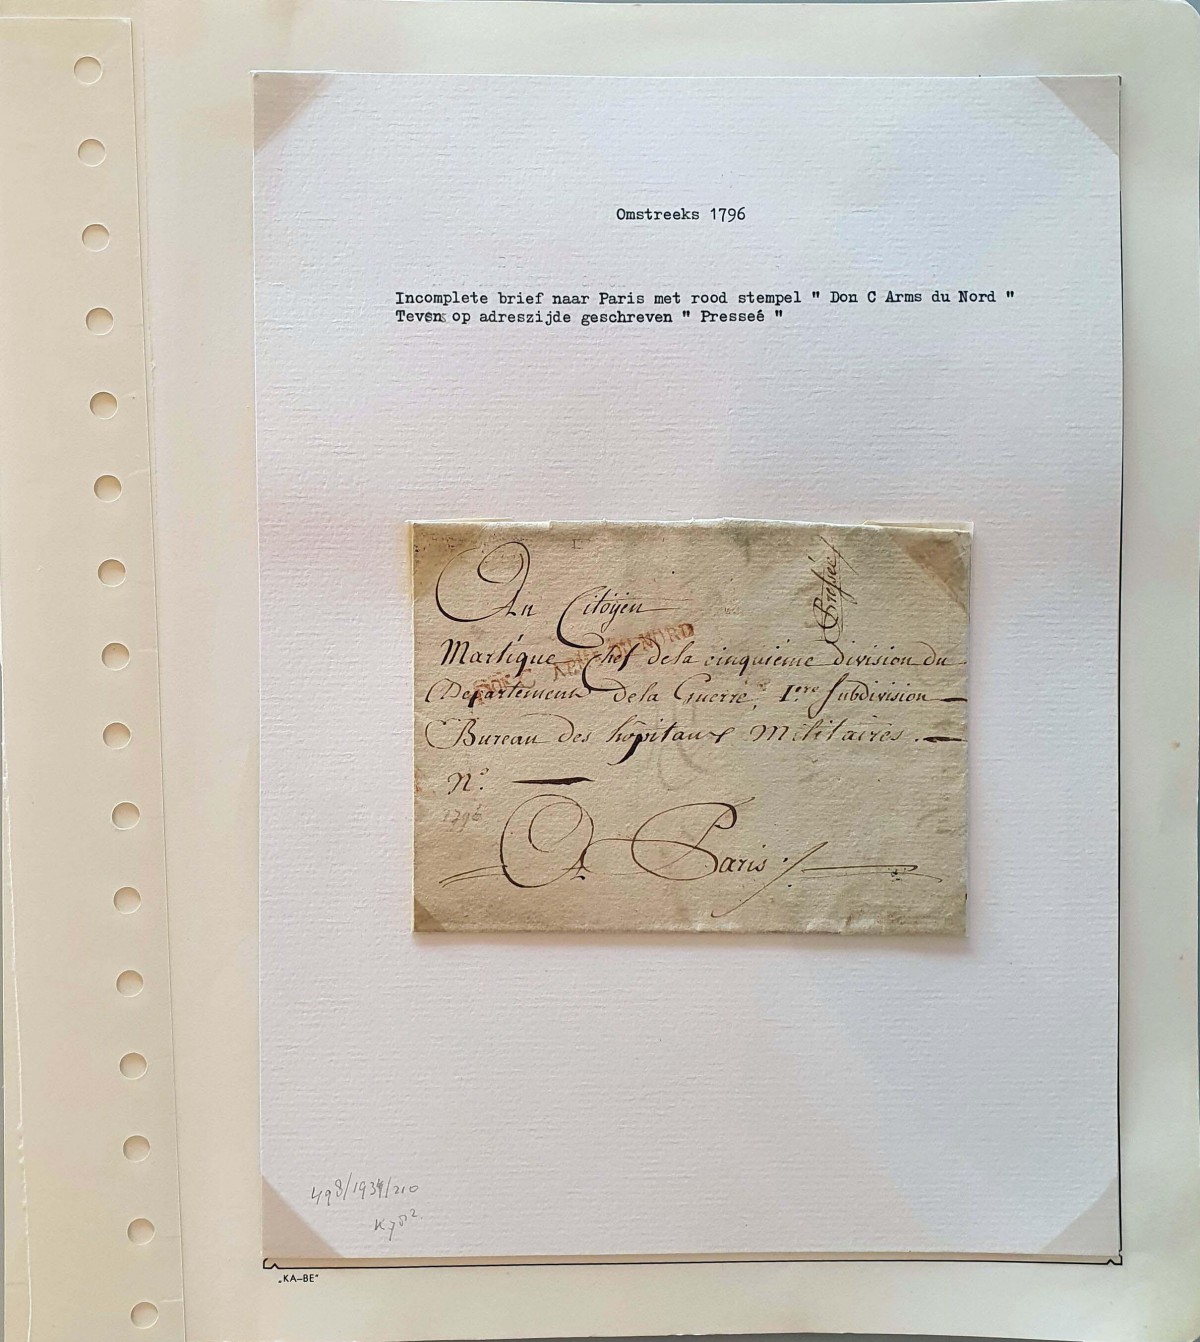 Omstreeks 1796
Incomplete brief naar Paris met rood stempel " Don C Arms du Nord "
Tevens op adreszijde geschreven " Presseé "
Pressée
Au Citoÿen
Martique Chef de la cinquieme division du
Departement de la Guerre, 1.ere Subdivision
Bureau des hôpitaux Militaires.
DON C ARMS DU NORD
N.o
1796
A Paris
498/1934/210
„KA–BE“